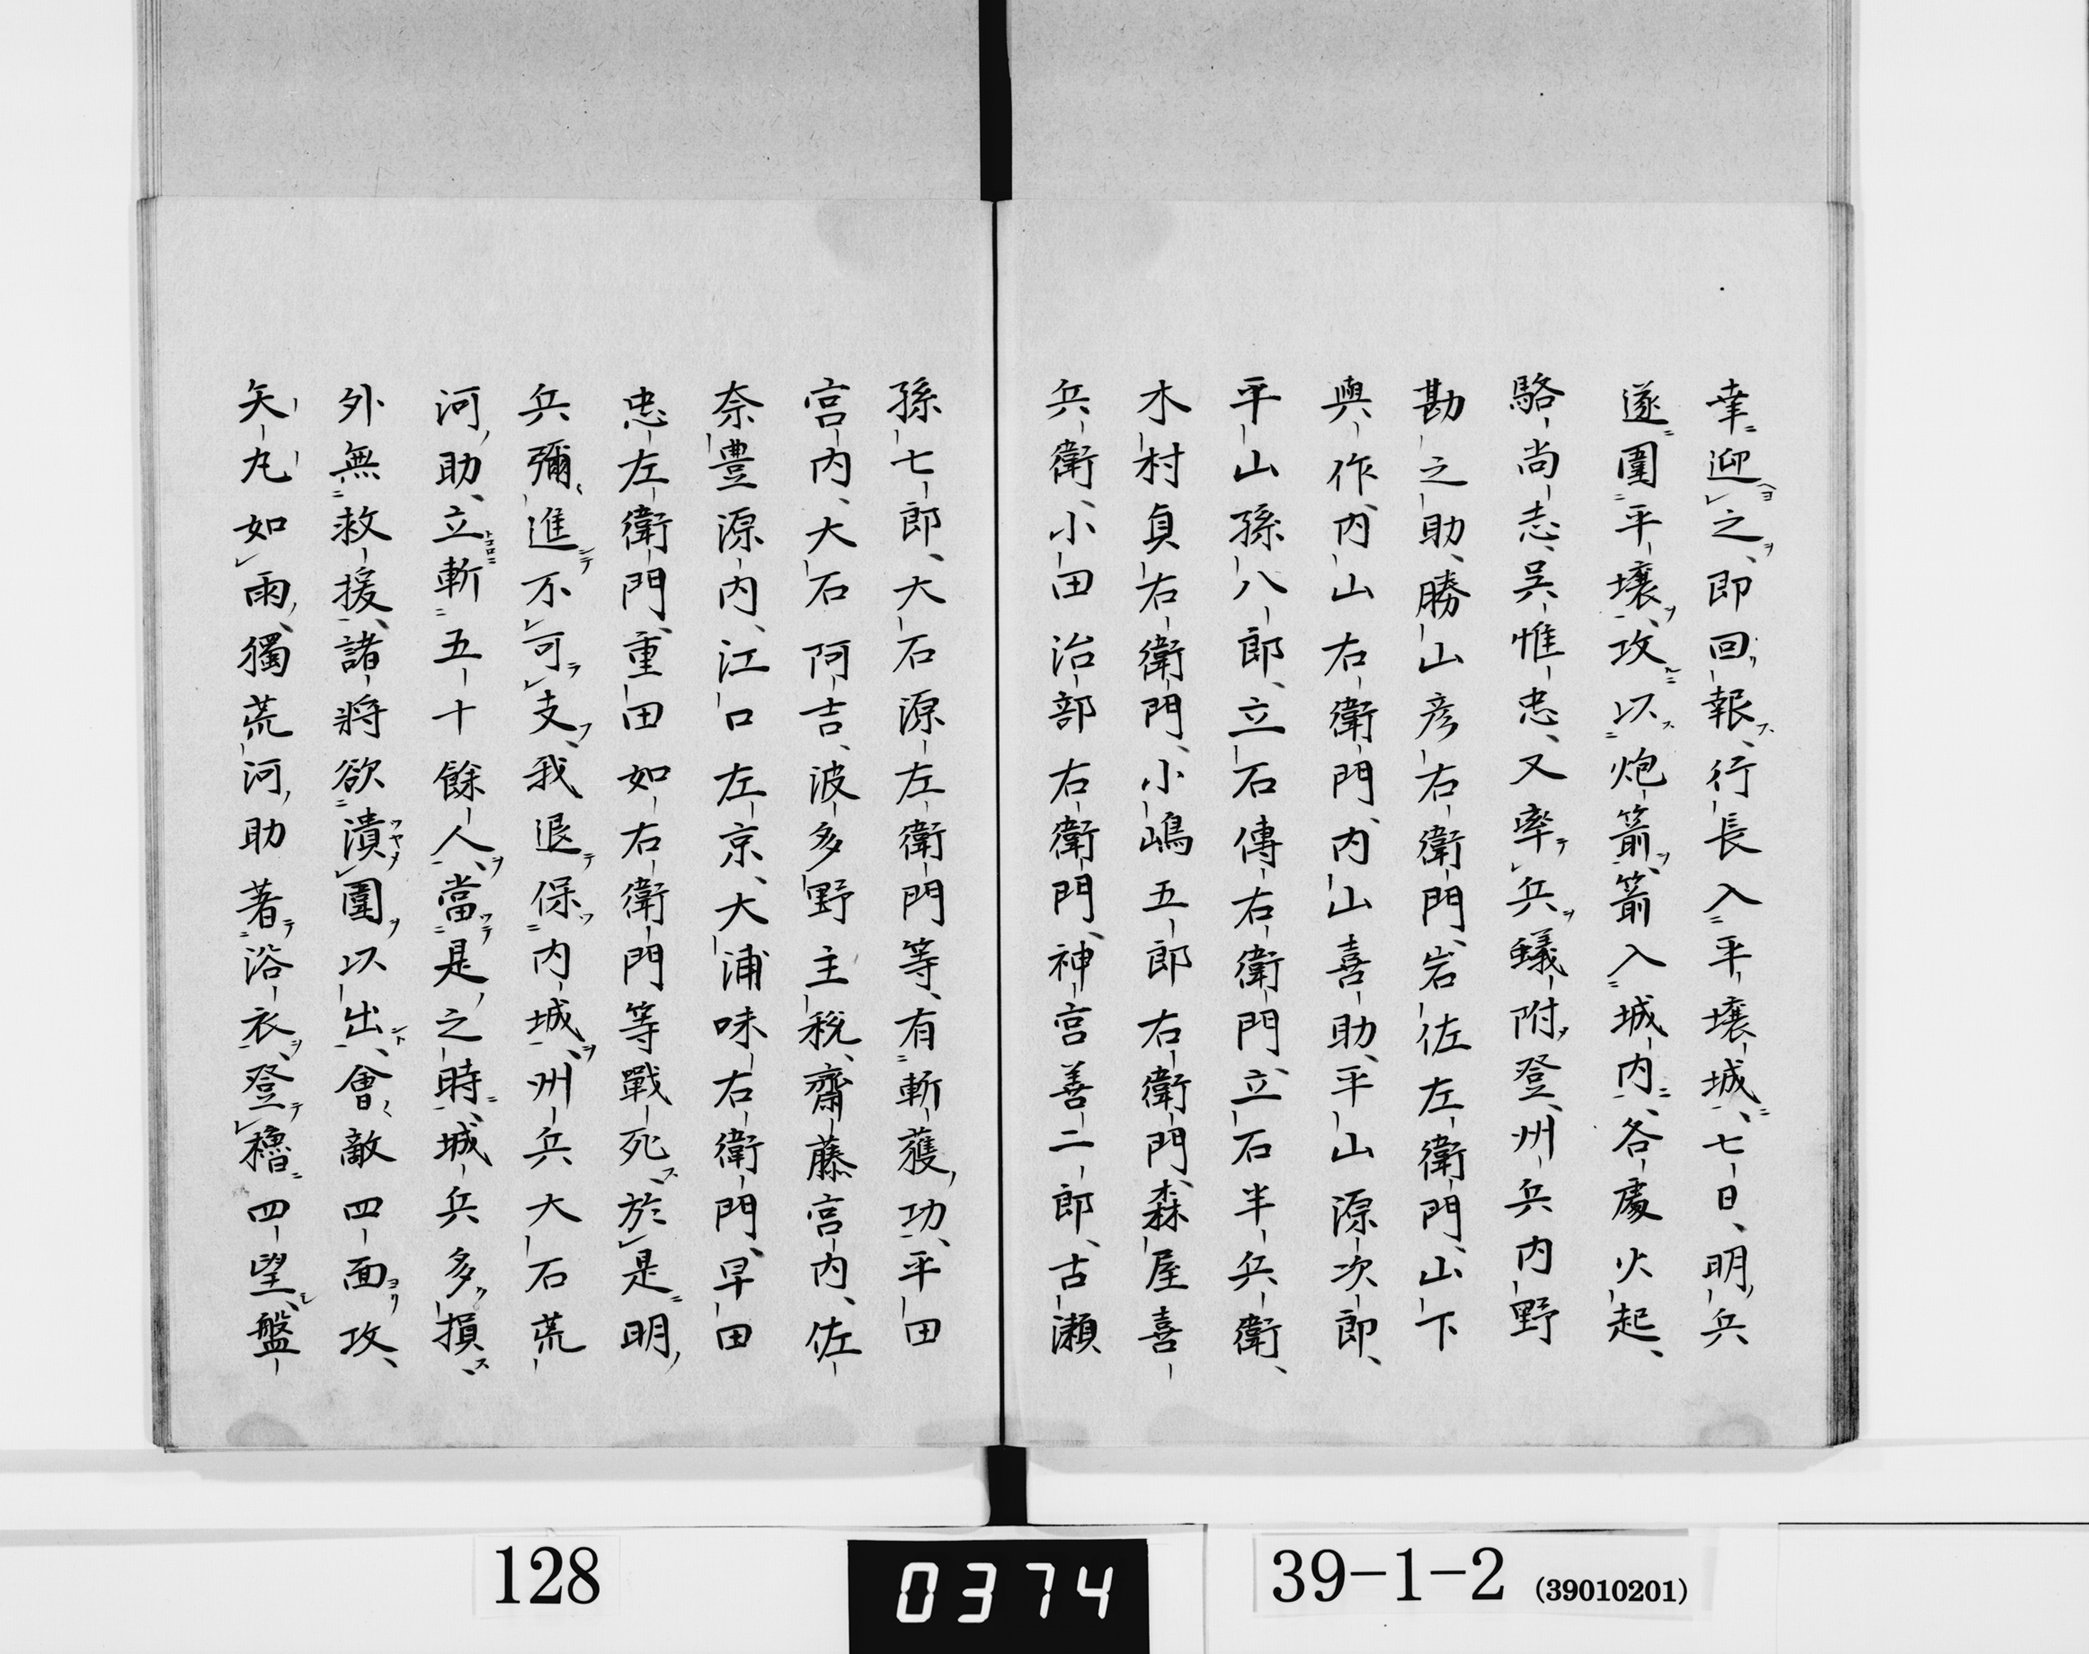 幸迎之、即回報、行長入平壤城、七日、明兵
遂圍平壤、攻以炮箭、箭入城内、各處火起、
駱尚志、吳惟忠、又率兵蟻附登、州兵内野
勘之助、勝山彦右衛門、岩佐左衛門、山下
與作、内山右衛門、内山喜助、平山源次郎、
平山孫八郎、立石傳右衛門、立石半兵衛、
木村貞右衛門、小嶋五郎右衛門、森屋喜
兵衛、小田治部右衛門、神宮善二郎、古瀬
孫七郎、大石源左衛門等、有斬獲功、平田
宮内、大石阿吉、波多野主税、齋藤宮内、佐
奈豊源内、江口左京、大浦味右衛門、早田
忠左衛門、重田如右衛門等戰死、於是明
兵彌進不可支、我退保内城、州兵大石荒
河助、立斬五十餘人、當是之時、城兵多損、
外無救援、諸將欲潰圍以出、會敵四面攻、
矢丸如雨、獨荒河助著浴衣、登櫓四望、盤
128
0374
39-1-2 (39010201)